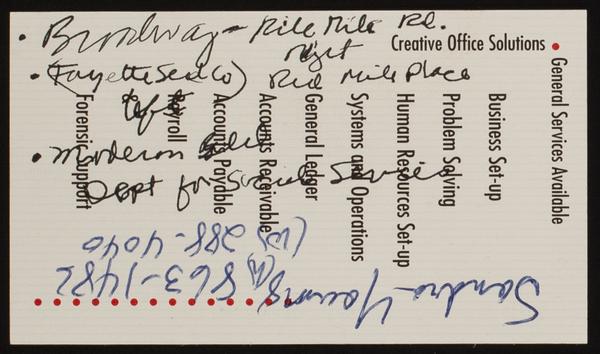 • Broadway - Rile Mile Rd.
Right
• (Fayette Seed Co) Red Mile Place
left
• Moderon
Dept for Social Services
Creative Office Solutions
General Services Available
Business Set-up
Problem Solving
Human Resources Set-up
Systems and Operations
General Ledger
Accounts Receivable
Accounts Payable
Payroll
Forensic Support
Sandra Young
(h) 863-1482
(w) 288-4040